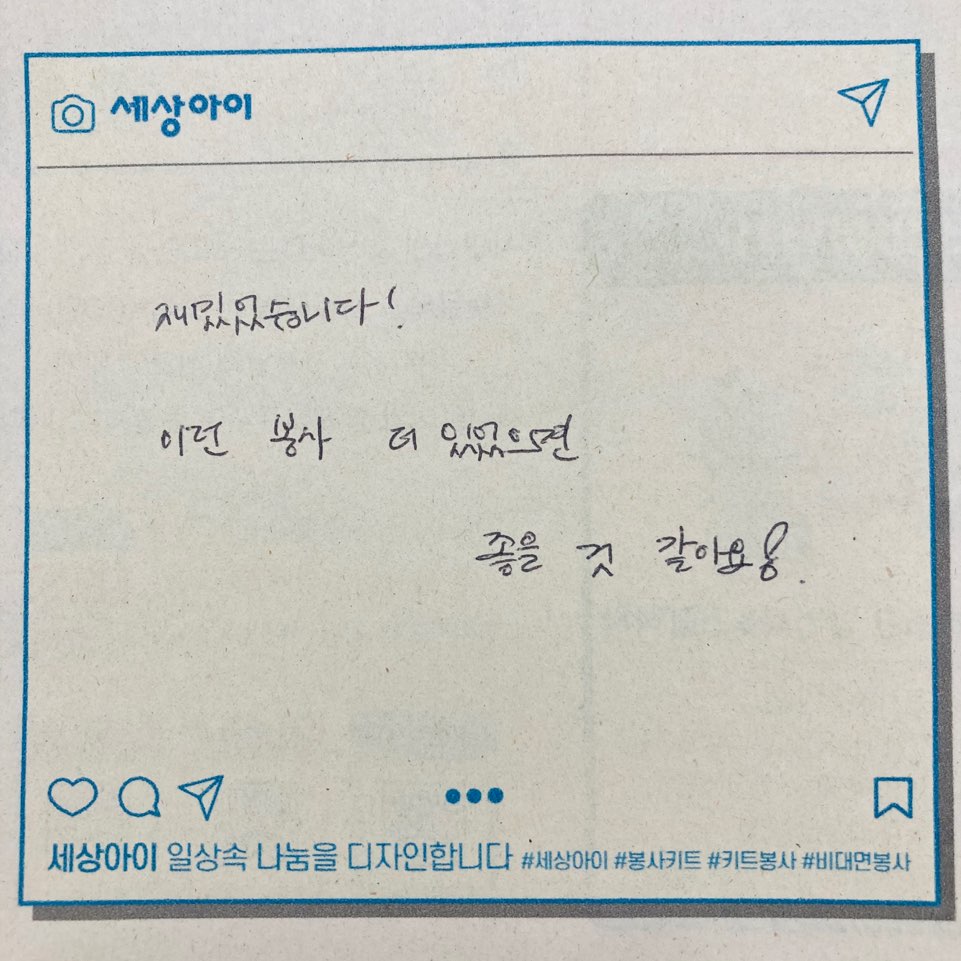 세상아이
재밌었습니다!
이런 봉사 더 있었으면
좋을 것 같아요!
세상아이 일상속 나눔을 디자인합니다 #세상아이 #봉사키트 #키트봉사 #비대면봉사